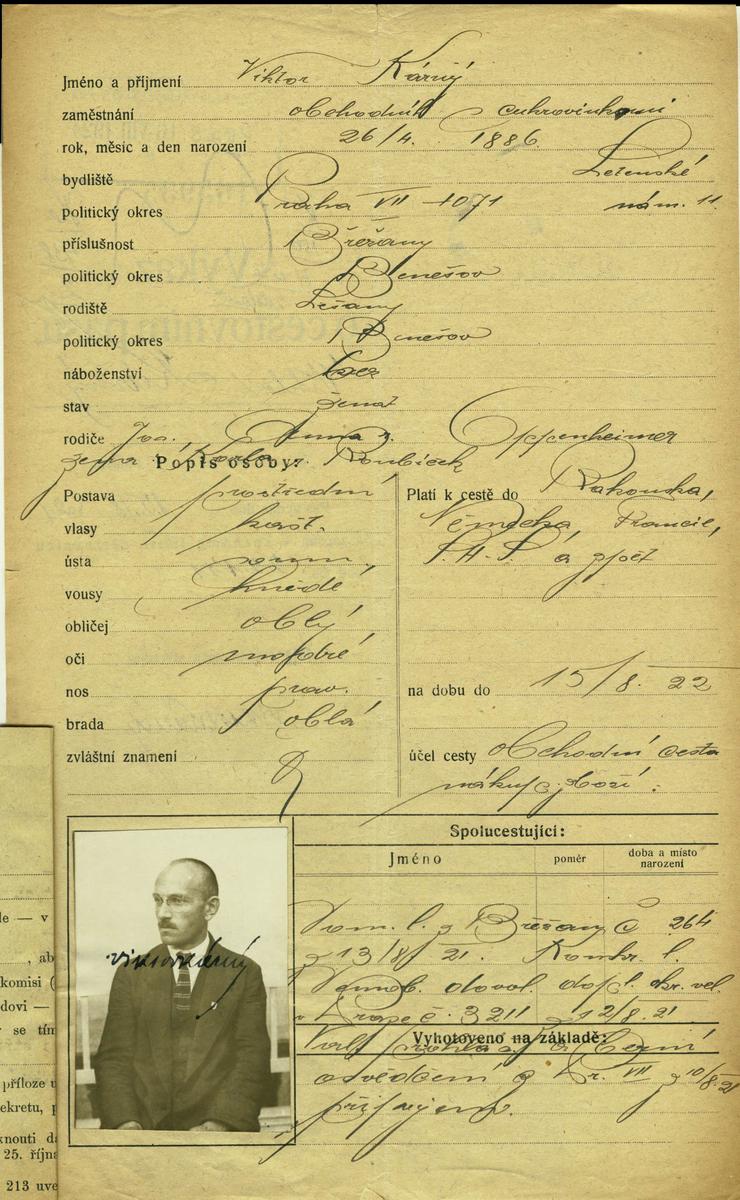 Jméno a příjmení Viktor Kárný
zaměstnání obchodník s cukrovinkami
rok, měsíc a den narození 26/4. 1886.
bydliště Letenské
politický okres Praha VII 1071 nám. 11.
příslušnost Břežany
politický okres Benešov
rodiště Lešany
politický okres Benešov
náboženství
stav ženat
rodiče Jos., Anna r. Oppenheimer
žena Karla r. Roubíček
Popis osoby:
Postava prostřední
vlasy kašt.
ústa
vousy hnědé
obličej oblý
oči modré
nos prav.
brada oblá
zvláštní znamení
Platí k cestě do Rakouska,
Německa, Francie,
S. H. S. a zpět
na dobu do 15/8. 22
účel cesty Obchodní cesta
nákup zboží.
Spolucestující:
Jméno poměr doba a místo
narození
Dom. l. z Břežany č 264
z 13/8/ 21. Konkr. l.
dovol. dopl. okr. vel.
v Praze č. 3211 z 12/8. 21
Vyhotoveno na základě:
osvědčení z Pr. VII z 10/8 21
viktor kárný
le — v
, ab
komisi (
dovi —
se tím
příloze u
ekretu, p
knouti da
25. říjn
213 uve